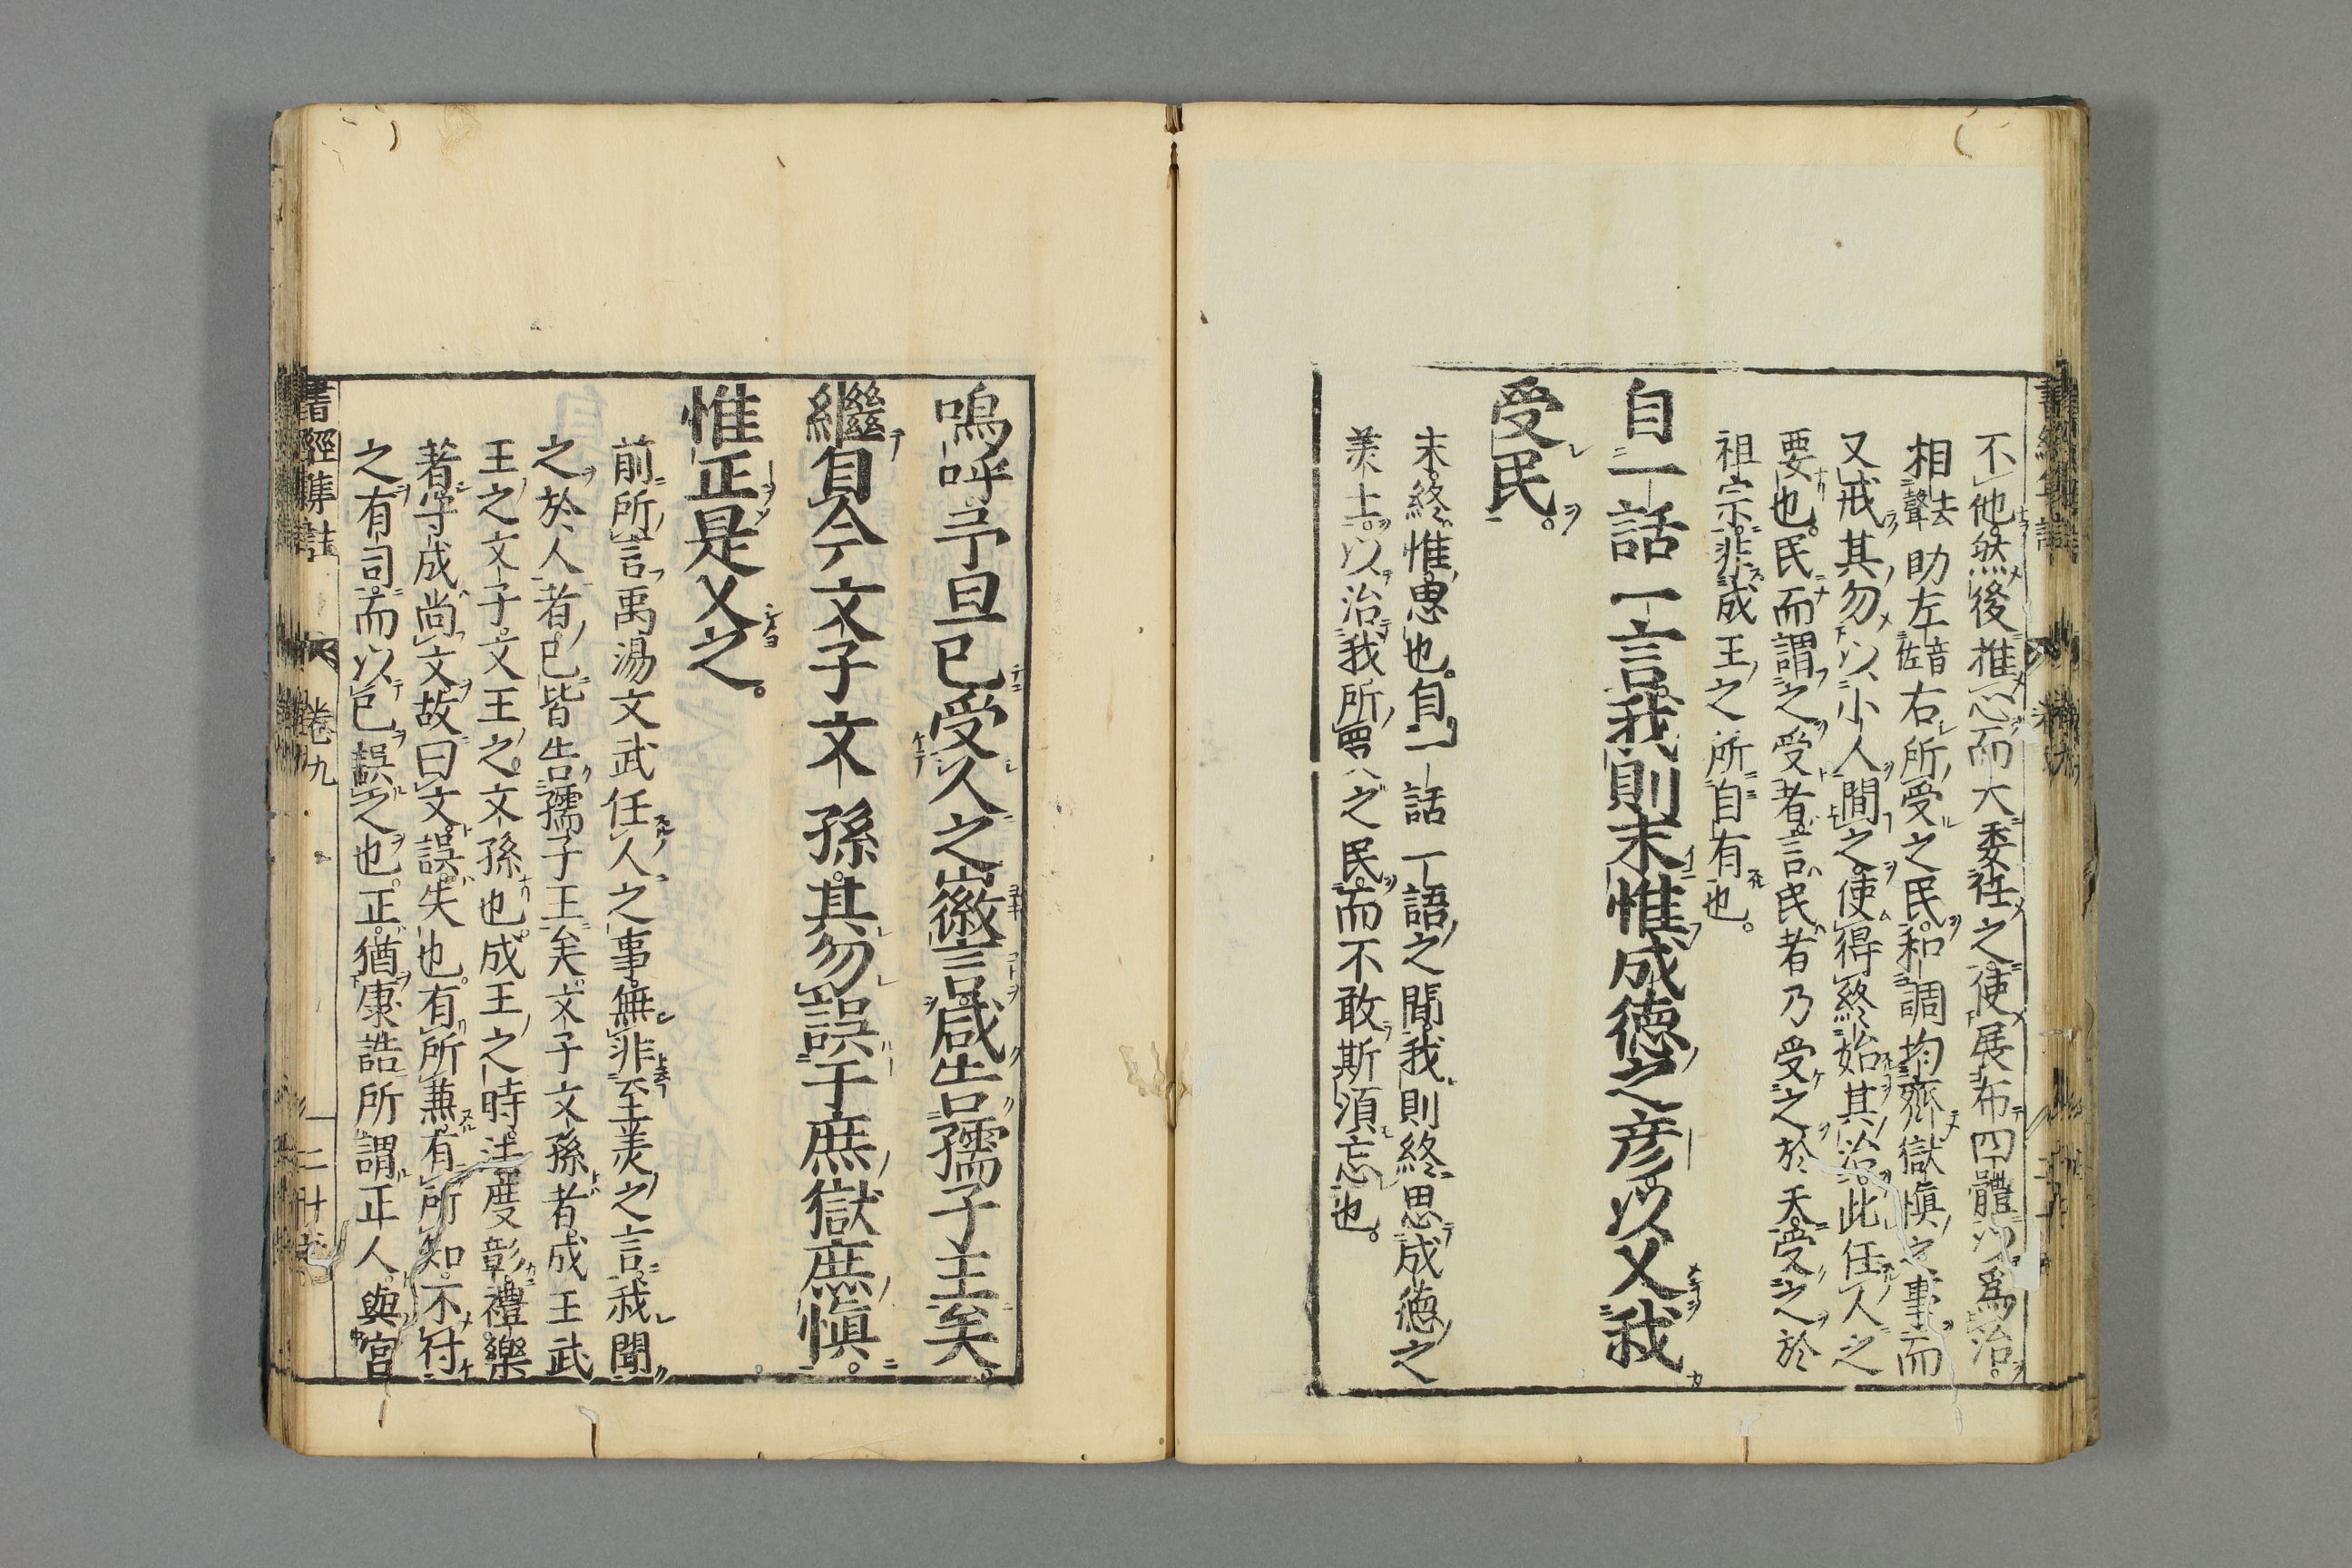 不他然後推心而大委任之使展布四體以爲治
相去聲助左音佐右所受之民和調均齊獄愼之事而
又戒其勿以小人間之使得終始其治此任人之
要也民而謂之受者言民者乃受之於天受之於
祖宗非成王之所自有也
自一話一言我則末惟成德之彦以乂我
受民
末終惟思也自一話一語之間我則終思成德之
美士以治我所受之民而不敢斯須忘也
嗚呼予旦已受人之徽言咸告孺子王矣
繼自今文子文孫其勿誤于庶獄庶愼
惟正是乂之
前所言禹湯文武任人之事無非至美之言我聞
之於人者已皆告孺子王矣文子文孫者成王武
王之文子文王之文孫也成王之時法度彰禮樂
著守成尚文故曰文誤失也有所兼有所知不付
之有司而以已誤之也正猶康誥所謂正人與宮
書經集註 卷九